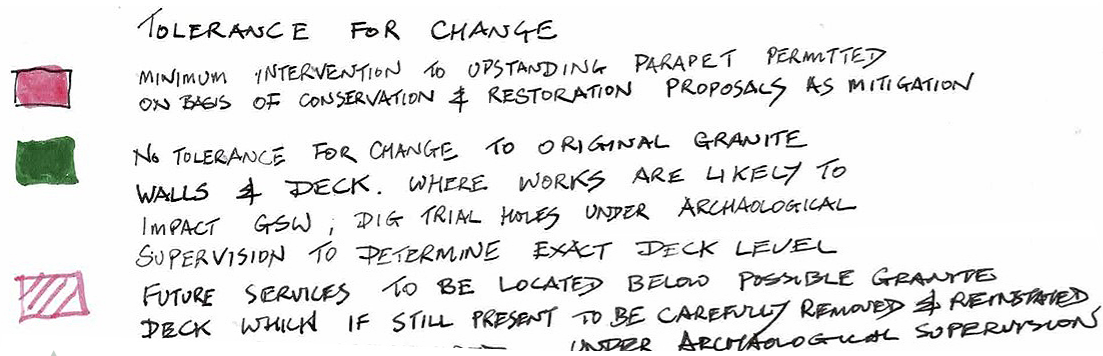 TOLERANCE FOR CHANGE
MINIMUM INTERVENTION TO UPSTANDING PARAPET PERMITTED
ON BASIS OF CONSERVATION & RESTORATION PROPOSALS AS MITIGATION
NO TOLERANCE FOR CHANGE TO ORIGINAL GRANITE
WALLS & DECK. WHERE WORKS ARE LIKELY TO
IMPACT GSW; DIG TRIAL HOLES UNDER ARCHAOLOGICAL
SUPERVISION TO DETERMINE EXACT DECK LEVEL
FUTURE SERVICES TO BE LOCATED BELOW POSSIBLE GRANITE
DECK WHICH IF STILL PRESENT TO BE CAREFULLY REMOVED & REINSTATED
UNDER ARCHAOLOGICAL SUPERVISION